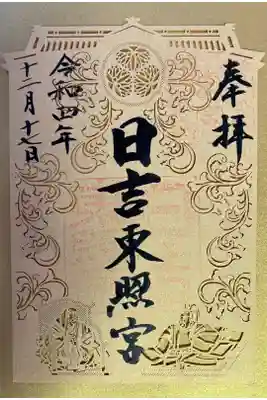 奉拝
日吉東照宮
令和四年
十二月十七日